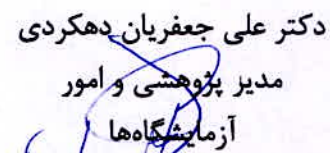 دکتر علی جعفریان دهکردی
مدیر پژوهشی و امور
آزمایشگاه‌ها